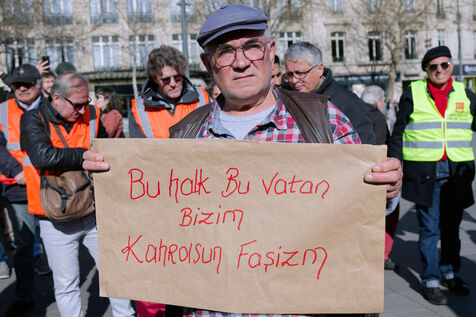 Bu halk Bu Vatan
Bizim
Kahrolsun Faşizm